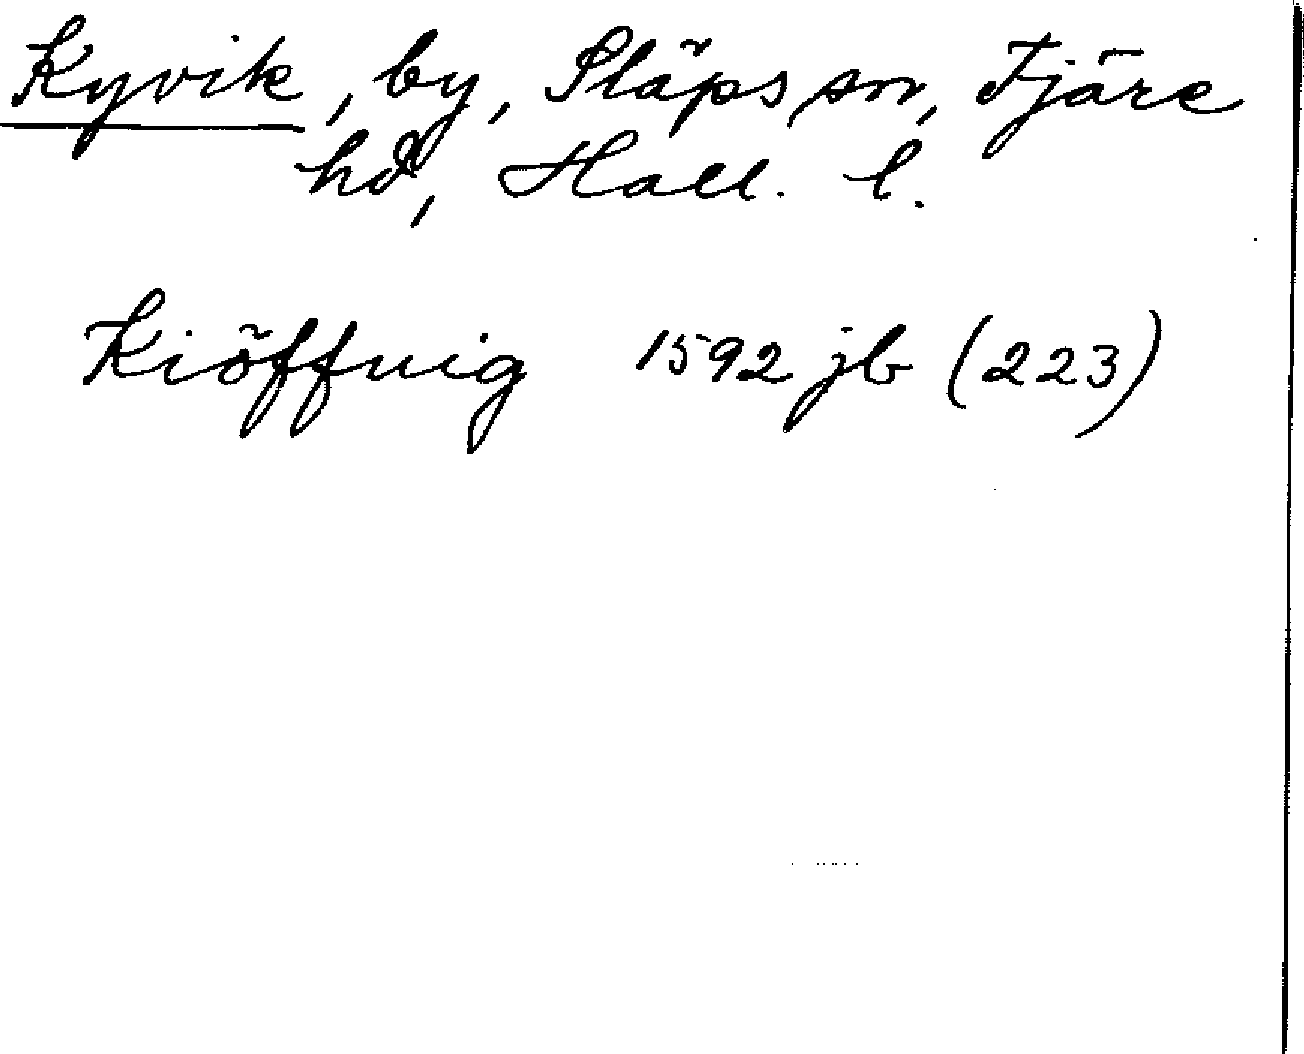 Kyvik, by, Släps sn, Fjäre
hd, Hall. l.
Kiöffuig 1592 jb (223)